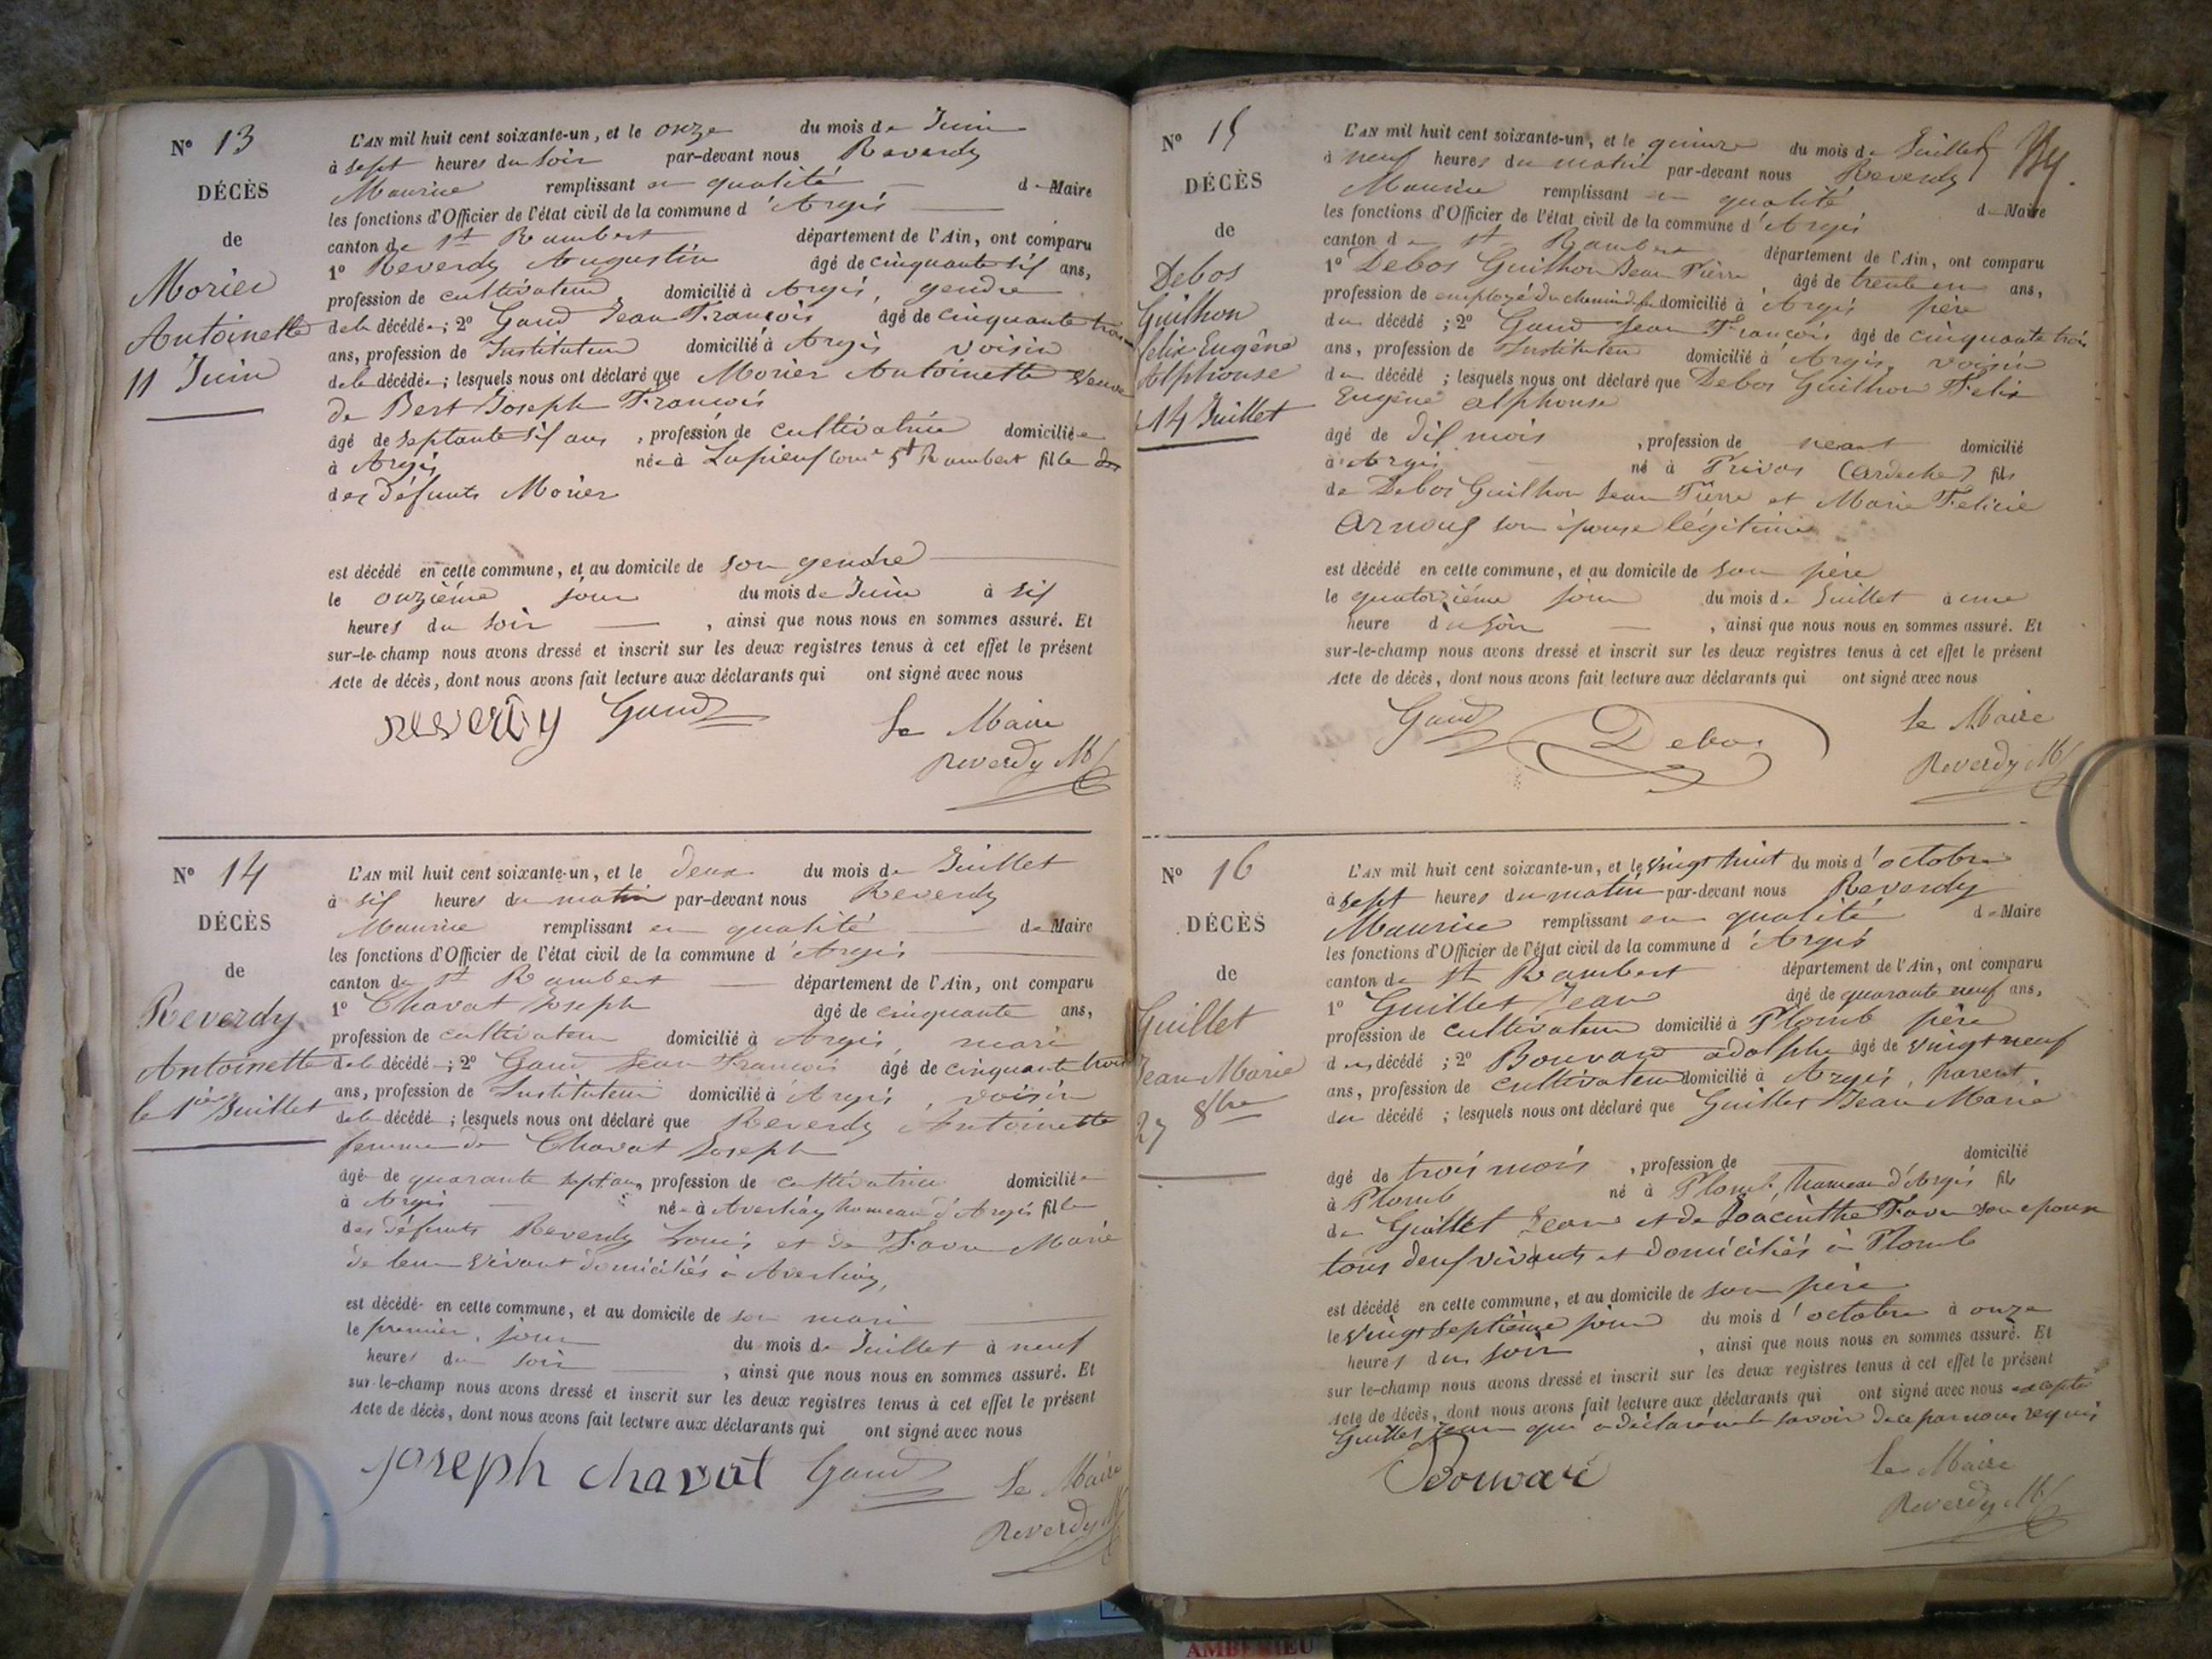 N° 13
DÉCÈS
de
Morier
Antoinette
11 Juin
L'AN mil huit cent soixante-un, et le onze du mois de Juin
à sept heures du soir par-devant nous Reverdy
Maurice remplissant en qualité de Maire
les fonctions d'Officier de l'état civil de la commune d'Argis
canton de St Rambert département de l'Ain, ont comparu
1° Reverdy Augustin âgé de cinquante six ans,
profession de cultivateur domicilié à Argis, gendre
de la décédée; 2° Gaud Jean François âgé de cinquante trois
ans, profession de Instituteur domicilié à Argis voisin
de la décédée; lesquels nous ont déclaré que Morier Antoinette veuve
de Bert Joseph François
âgé de septante six ans, profession de cultivatrice domiciliée
à Argis née à Lupieux Comne St Rambert fille
des défunts Morier
est décédé en cette commune, et au domicile de son gendre
le onzième jour du mois de Juin à six
heures du soir, ainsi que nous nous en sommes assuré. Et
sur-le-champ nous avons dressé et inscrit sur les deux registres tenus à cet effet le présent
Acte de décès, dont nous avons fait lecture aux déclarants qui ont signé avec nous
reverdy Gaud Le Maire
Reverdy M
N° 14
DÉCÈS
de
Reverdy
Antoinette
le 1er Juillet
L'AN mil huit cent soixante-un, et le deux du mois de Juillet
à six heures du matin par-devant nous Reverdy
Maurice remplissant en qualité de Maire
les fonctions d'Officier de l'état civil de la commune d'Argis
canton de St Rambert département de l'Ain, ont comparu
1° Chavat Joseph âgé de cinquante ans,
profession de cultivateur domicilié à Argis, mari
de la décédé; 2° Gaud Jean François âgé de cinquante trois
ans, profession de Instituteur domicilié à Argis, voisin
de la décédé; lesquels nous ont déclaré que Reverdy Antoinette
femme de Chavat Joseph
âgé de quarante sept ans, profession de cultivatrice domiciliée
à Argis née à Averliaz hameau d'Argis fille
des défunts Reverdy Louis et de Favre Marie
de leur vivant domiciliés à Averliaz,
est décédé en cette commune, et au domicile de son mari
le premier jour du mois de Juillet à neuf
heures du soir, ainsi que nous nous en sommes assuré. Et
sur-le-champ nous avons dressé et inscrit sur les deux registres tenus à cet effet le présent
Acte de décès, dont nous avons fait lecture aux déclarants qui ont signé avec nous
joseph chavat Gaud Le Maire
Reverdy M
N° 15
DÉCÈS
de
Debos
Guilhon
felix Eugène
Alphonse
14 Juillet
L'AN mil huit cent soixante-un, et le quinze du mois de Juillet
à neuf heures du matin par-devant nous Reverdy
Maurice remplissant en qualité de Maire
les fonctions d'Officier de l'état civil de la commune d'Argis
canton de St Rambert département de l'Ain, ont comparu
1° Debos Guilhon Jean Pierre âgé de trente un ans,
profession de employé du chemin de fer domicilié à Argis père
du décédé; 2° Gaud Jean François âgé de cinquante trois
ans, profession de Instituteur domicilié à Argis, voisin
du décédé; lesquels nous ont déclaré que Debos Guilhon Felix
Eugène alphonse
âgé de dix mois, profession de neant domicilié
à Argis né à Privas (Ardeche) fils
de Debos Guilhon Jean Pierre et Marie Felicie
Arnoux son épouse légitime
est décédé en cette commune, et au domicile de son père
le quatorzième jour du mois de Juillet à une
heure du soir, ainsi que nous nous en sommes assuré. Et
sur-le-champ nous avons dressé et inscrit sur les deux registres tenus à cet effet le présent
Acte de décès, dont nous avons fait lecture aux déclarants qui ont signé avec nous
Gaud Debos Le Maire
Reverdy M
N° 16
DÉCÈS
de
Guillet
Jean Marie
27 8bre
L'AN mil huit cent soixante-un, et le vingt huit du mois d'octobre
à sept heures du matin par-devant nous Reverdy
Maurice remplissant en qualité de Maire
les fonctions d'Officier de l'état civil de la commune d'Argis
canton de St Rambert département de l'Ain, ont comparu
1° Guillet Jean âgé de quarante neuf ans,
profession de cultivateur domicilié à Plomb père
du décédé; 2° Bouvard adolphe âgé de vingt neuf
ans, profession de cultivateur domicilié à Argis, parent
du décédé; lesquels nous ont déclaré que Guillet Jean Marie
âgé de trois mois, profession de domicilié
à Plomb né à Plomb, hameau d'Argis fils
de Guillet Jean et de Joacinthe Favre son epouse
tous deux vivants et domiciliés à Plomb
est décédé en cette commune, et au domicile de son père
le vingt septième jour du mois d'octobre à onze
heures du soir, ainsi que nous nous en sommes assuré. Et
sur le-champ nous avons dressé et inscrit sur les deux registres tenus à cet effet le présent
Acte de décès, dont nous avons fait lecture aux déclarants qui ont signé avec nous excepté
Guillet Jean qui a déclaré ne le savoir de ce par nous requis
Bouvard Le Maire
Reverdy M
AMBERIEU